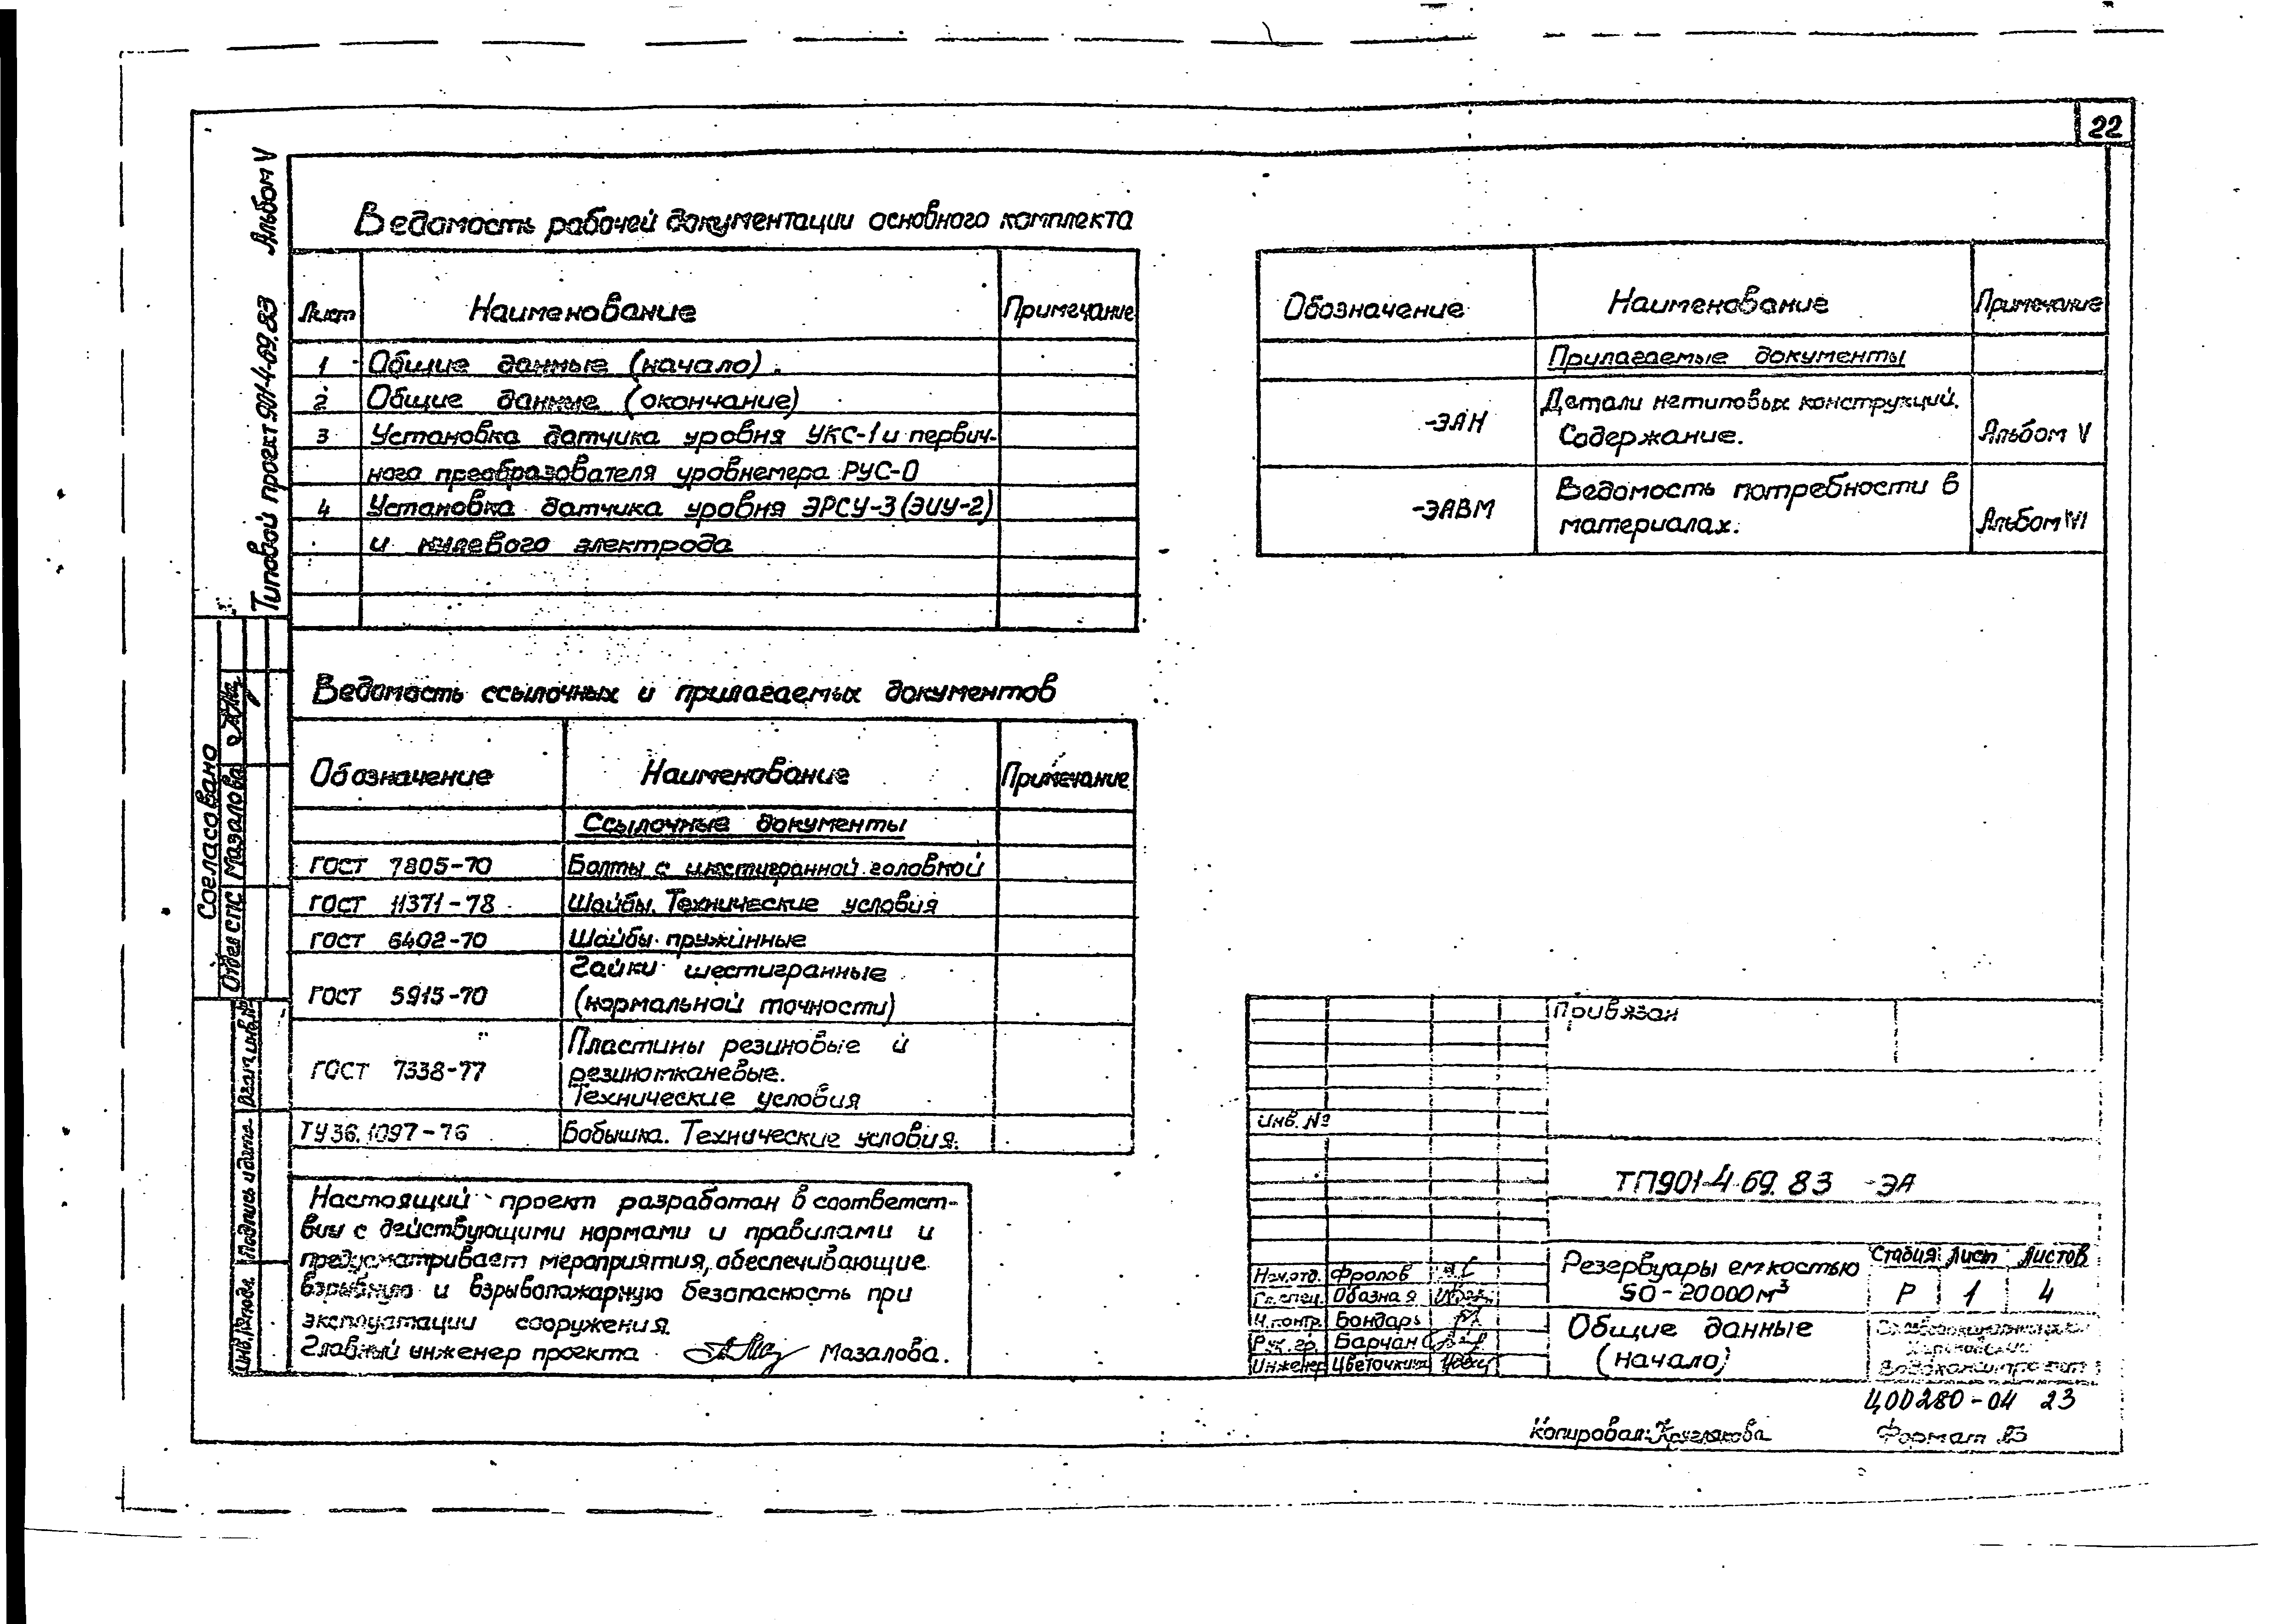 22
Альбом V
Типовой проект 901-4-69.83
Ведомость рабочей документации основного комплекта
Лист Наименование Примечание
1 Общие данные (начало).
2 Общие данные (окончание)
3 Установка датчика уровня УКС-1 и первич-
ного преобразователя уровнемера РУС-0
4 Установка датчика уровня ЭРСУ-3 (ЭИУ-2)
и нулевого электрода
Ведомость ссылочных и прилагаемых документов
Обозначение Наименование Примечание
Ссылочные документы
ГОСТ 7805-70 Болты с шестигранной головкой
ГОСТ 11371-78 Шайбы. Технические условия
ГОСТ 6402-70 Шайбы пружинные
Гайки шестигранные
ГОСТ 5915-70 (нормальной точности)
Пластины резиновые и
ГОСТ 7338-77 резинотканевые.
Технические условия
ТУ36.1097-76 Бобышка. Технические условия.
Настоящий проект разработан в соответст-
вии с действующими нормами и правилами и
предусматривает мероприятия, обеспечивающие
взрывную и взрывопожарную безопасность при
эксплуатации сооружения.
Главный инженер проекта Мазалова.
Обозначение Наименование Примечание
Прилагаемые документы
-ЭАН Детали нетиповых конструкций.
Содержание. Альбом V
Ведомость потребности в
-ЭАВМ материалах. Альбом VI
Согласовано
Отдел СПС Мазалова
Взам.инв.№
Подпись и дата
Инв.№ подл.
Привязан
Инв. №
ТП901-4-69.83 -ЭА
Нач.отд. Фролов
Гл.спец. Обазная
Н.контр. Бондарь
Рук. гр. Барчан
Инженер Цветочкина
Резервуары емкостью
50-20000м³
Стадия Лист Листов
Р 1 4
Общие данные
(начало)
Союзводоканалпроект
Харьковский
Водоканалпроект
Ц00280-04 23
Копировал: Круглякова
Формат А3